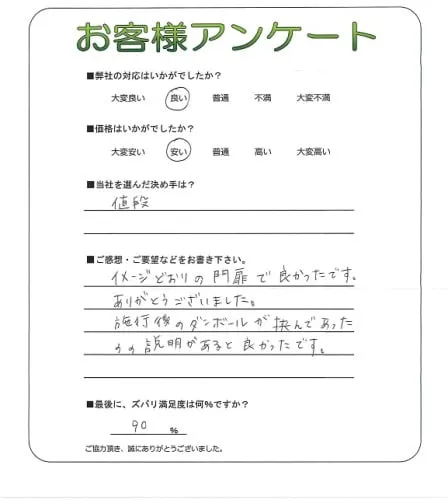 お客様アンケート
■弊社の対応はいかがでしたか？
大変良い 良い 普通 不満 大変不満
■価格はいかがでしたか？
大変安い 安い 普通 高い 大変高い
■当社を選んだ決め手は？
値段
■ご感想・ご要望などをお書き下さい。
イメージどおりの門扉で良かったです。
ありがとうございました。
施行後のダンボールが挟んであった
のの説明があると良かったです。
■最後に、ズバリ満足度は何％ですか？
90 %
ご協力頂き、誠にありがとうございました。